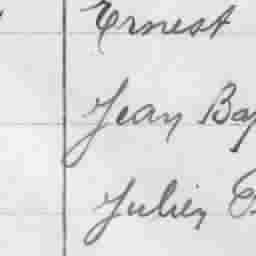 Ernest
Jean Bap
Julien